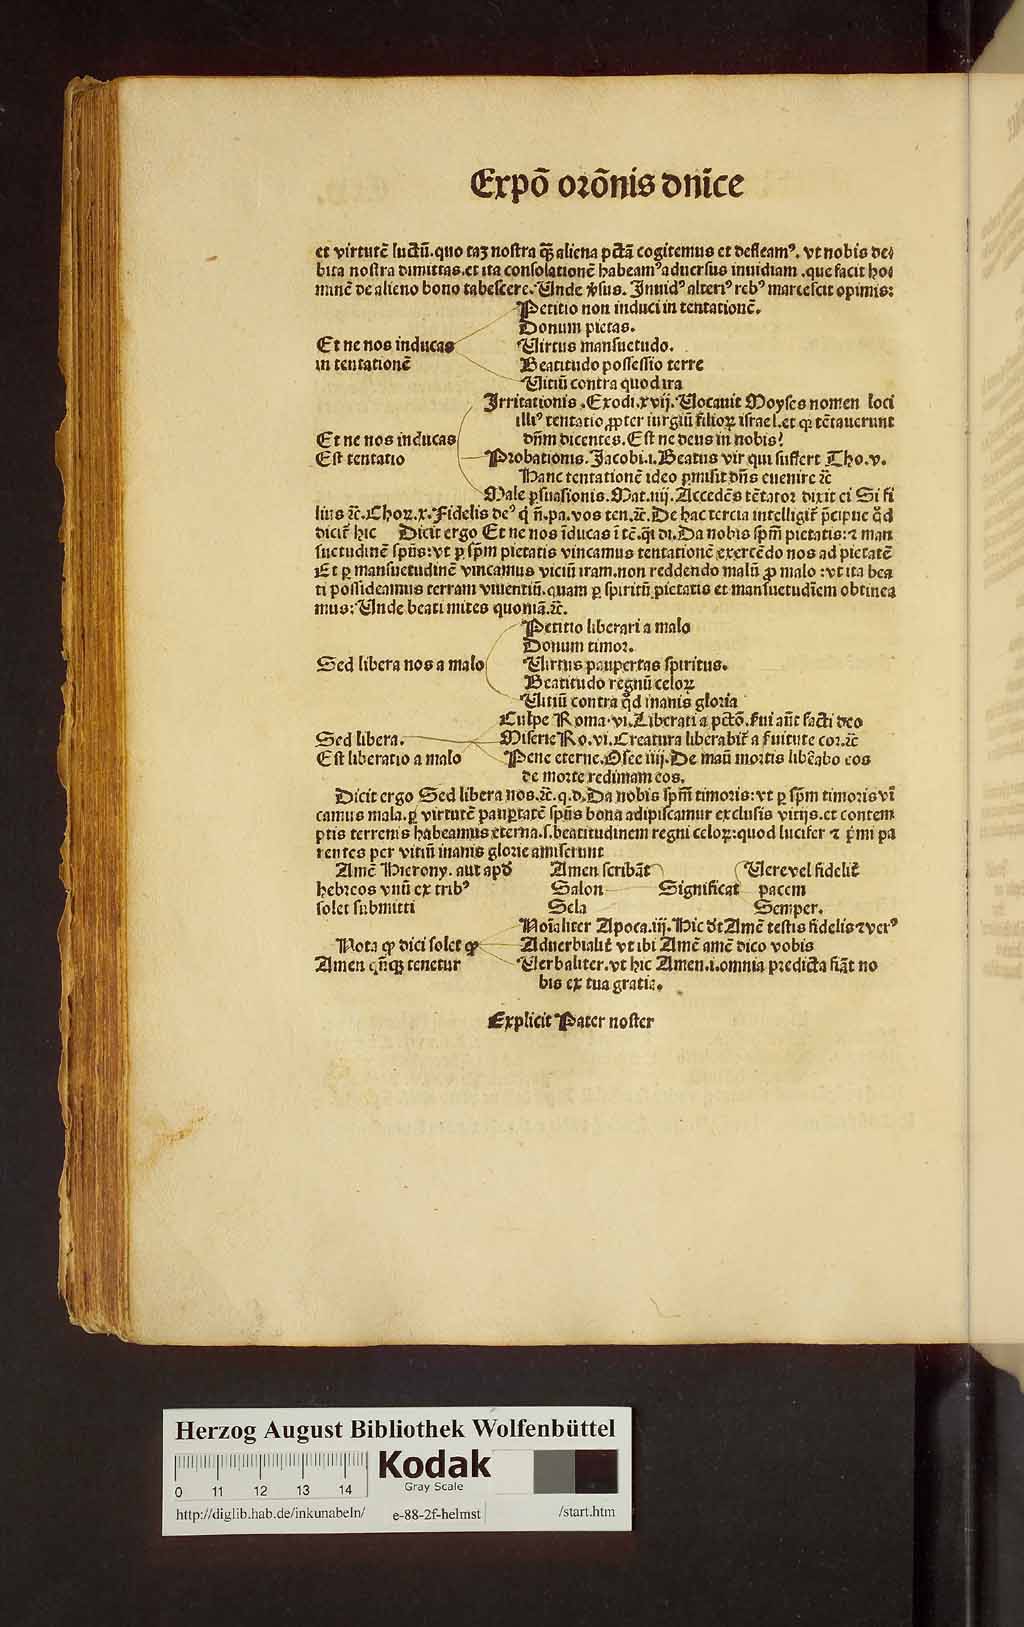 Expō orōnis dnīce
et virtutē luctū.quo taꝫ nostra qꝫ̄ aliena pctā cogitemus et defleamꝰ. vt nobis de⸗
bita nostra dimittas.et ita consolationē habeamꝰ aduersus inuidiam .que facit ho⸗
minē de alieno bono tabescere. Unde v̓sus. Inuidꝰ alteriꝰ rebꝰ marcescit opimis:
Petitio non induci in tentationē.
Donum pietas.
Et ne nos inducas Virtus mansuetudo.
in tentationē Beatitudo possessio terre
Vitiū contra quod ira
Irritationis .Exodi.xvij. Vocauit Moyses nomen loci
illiꝰ tentatio ꝓpter iurgiū filioꝝ israel.et qꝛ tētauerunt
Et ne nos inducas dn̄m dicentes. Est ne deus in nobis?
Est tentatio Probationis. Jacobi.i. Beatus vir qui suffert Tho.v.
Hanc tentationē ideo ꝑmisit dn̄s euenire ⁊c̄
Male ꝑsuasionis. Mat.iiij. Accedēs tētator dixit ei Si fi
lius ⁊c̄. Choꝝ.x. Fidelis deꝰ q̇ n̄.pa.vos ten.⁊c̄. De hac tercia intelligit̄ p̄cipue qd̓
dicit̄ hic Dicit ergo Et ne nos īducas ī tē.q̄i di. Da nobis sp̄m pietatis:⁊ man
suetudinē sp̄ūs:vt ꝑ sp̄m pietatis vincamus tentationē exercēdo nos ad pietatē
Et ꝑ mansuetudinē vincamus viciū iram.non reddendo malū ꝓ malo :vt ita bea
ti possideamus terram viuentiū.quam ꝑ spiritū pietatis et mansuetudīem obtinea
mus: Unde beati mites quoniā.⁊c̄.
Petitio liberari a malo
Donum timor.
Sed libera nos a malo Virtus paupertas spiritus.
Beatitudo regnū celoꝝ
Vitiū contra qd̓ inanis gloria
Culpe Roma.vi. Liberati a pctō.s̓ui aūt facti deo
Sed libera. Miserie Ro.vi. Creatura liberabit̄ a s̓uitute cor.⁊c̄
Est liberatio a malo Pene eterne. Osee iiij. De manū mortis libēabo eos
de morte redimam eos.
Dicit ergo Sed libera nos.⁊c̄.q.d. Da nobis sp̄m timoris:vt ꝑ sp̄m timoris vī
camus mala.ꝑ virtutē pauꝑtatē sp̄ūs bona adipiscamur exclusis vitijs.et contem
ptis terrenis habeamus eterna.s.beatitudinem regni celoꝝ:quod lucifer ⁊ p̄mi pa
rentes per vitiū inanis glorie amiserunt
Amē Hierony. aut apd̓ Amen scribāt Vere vel fidelit̄
hebreos vnū ex tribꝰ Salon Significat pacem
solet submitti Sela Semper.
Noīaliter Apoca.iij. Hic d̓t Amē testis fidelis ⁊ verꝰ
Nota ꝙ dici solet ꝙ Aduerbialit̄ vt ibi Amē amē dico vobis
Amen qn̄qꝫ tenetur Verbaliter. vt hic Amen.i.omnia predicta fiāt no
bis ex tua gratia.
Explicit Pater noster
Herzog August Bibliothek Wolfenbüttel
Kodak
Gray Scale
0 11 12 13 14
http://diglib.hab.de/inkunabeln/ e-88-2f-helmst /start.htm